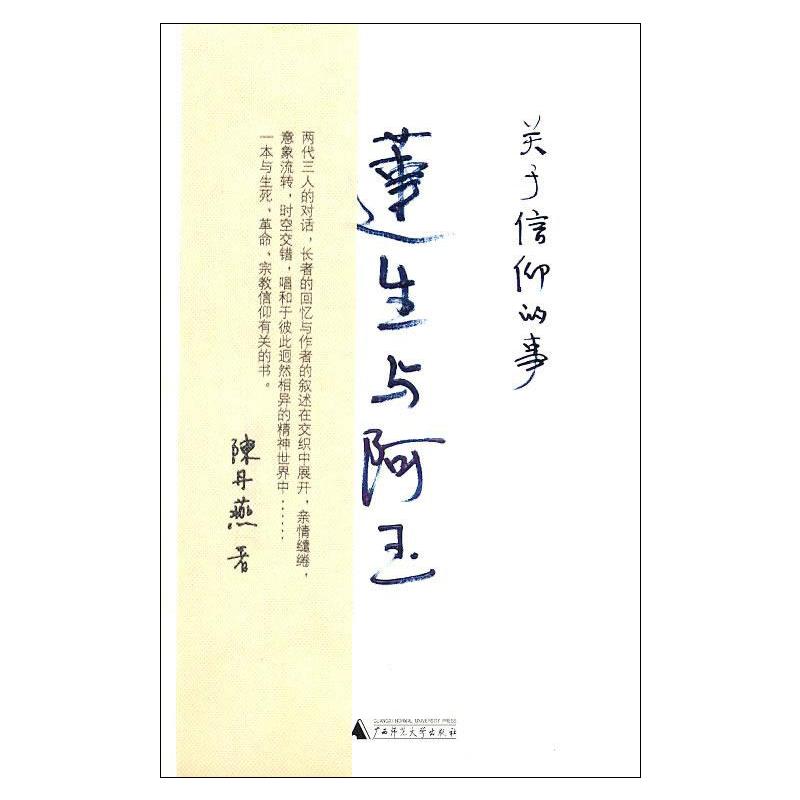 关于信仰的事
蓮生与阿玉
两代三人的对话，长者的回忆与作者的叙述在交织中展开，亲情缱绻，
意象流转，时空交错，唱和于彼此迥然相异的精神世界中……
一本与生死，革命，宗教信仰有关的书。
陳丹燕 著
GUANGXI NORMAL UNIVERSITY PRESS
广西师范大学出版社